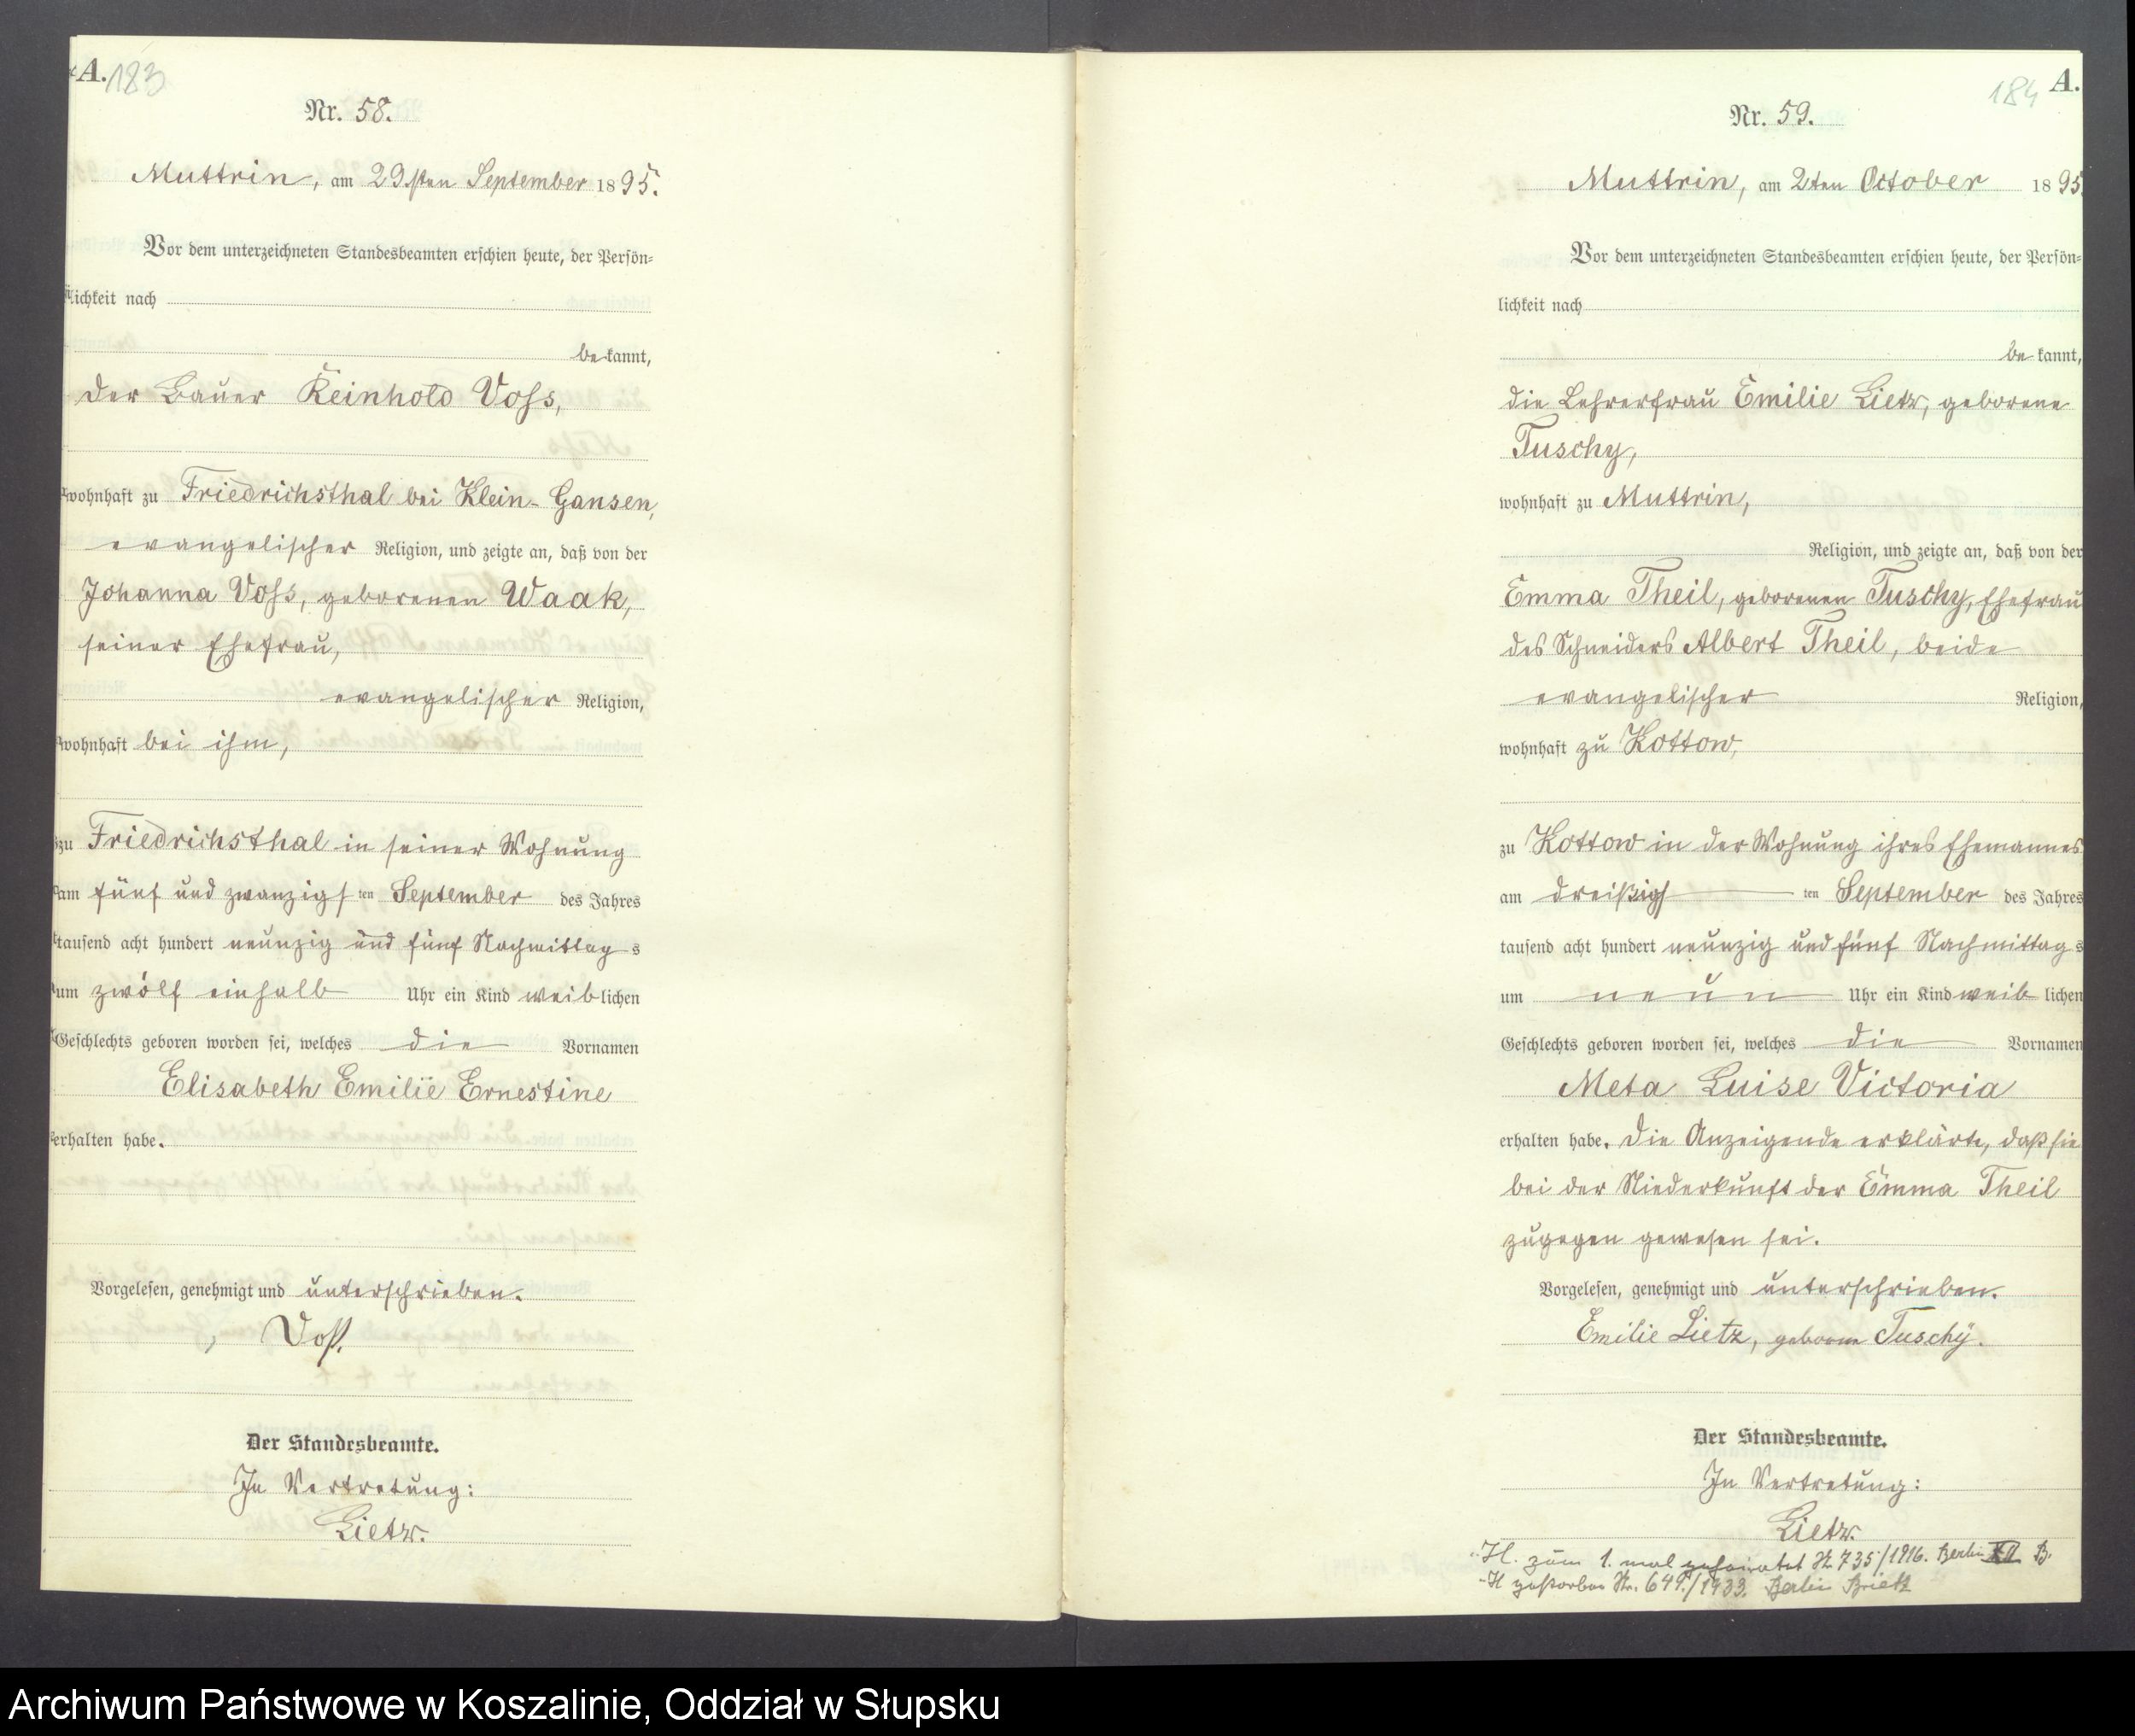 A. 183
Nr. 58.
Muttrin, am 29sten September 1895.
Vor dem unterzeichneten Standesbeamten erschien heute, der Persön=
lichkeit nach
bekannt,
der Bauer Reinhold Voss,
wohnhaft zu Friedrichsthal bei Klein-Gansen,
evangelischer Religion, und zeigte an, daß von der
Johanna Voss, geborenen Waak,
seiner Ehefrau,
evangelischer Religion,
wohnhaft bei ihm,
zu Friedrichsthal in seiner Wohnung
am fünf und zwanzigsten September des Jahres
tausend acht hundert neunzig und fünf Nachmittags
um zwölf einhalb Uhr ein Kind weiblichen
Geschlechts geboren worden sei, welches die Vornamen
Elisabeth Emilie Ernestine
erhalten habe.
Vorgelesen, genehmigt und unterschrieben.
Voß.
Der Standesbeamte.
In Vertretung:
Lietz.
184 A.
Nr. 59.
Muttrin, am 2ten October 1895
Vor dem unterzeichneten Standesbeamten erschien heute, der Persön=
lichkeit nach
bekannt,
die Lehrerfrau Emilie Lietz, geborene
Tuschy,
wohnhaft zu Muttrin,
Religion, und zeigte an, daß von der
Emma Theil, geborenen Tuschy, Ehefrau
des Schneiders Albert Theil, beide
evangelischer Religion,
wohnhaft zu Kottow,
zu Kottow in der Wohnung ihres Ehemannes
am dreißigsten September des Jahres
tausend acht hundert neunzig und fünf Nachmittags
um neun Uhr ein Kind weiblichen
Geschlechts geboren worden sei, welches die Vornamen
Meta Luise Victoria
erhalten habe. Die Anzeigende erklärte, daß sie
bei der Niederkunft der Emma Theil
zugegen gewesen sei.
Vorgelesen, genehmigt und unterschrieben.
Emilie Lietz, geborne Tuschÿ.
Der Standesbeamte.
In Vertretung:
Lietz.
zum 1. mal geheiratet Nr. 735/1916. Berlin XII B.
gestorben Nr. 649/1933. Berlin Britz
Archiwum Państwowe w Koszalinie, Oddział w Słupsku